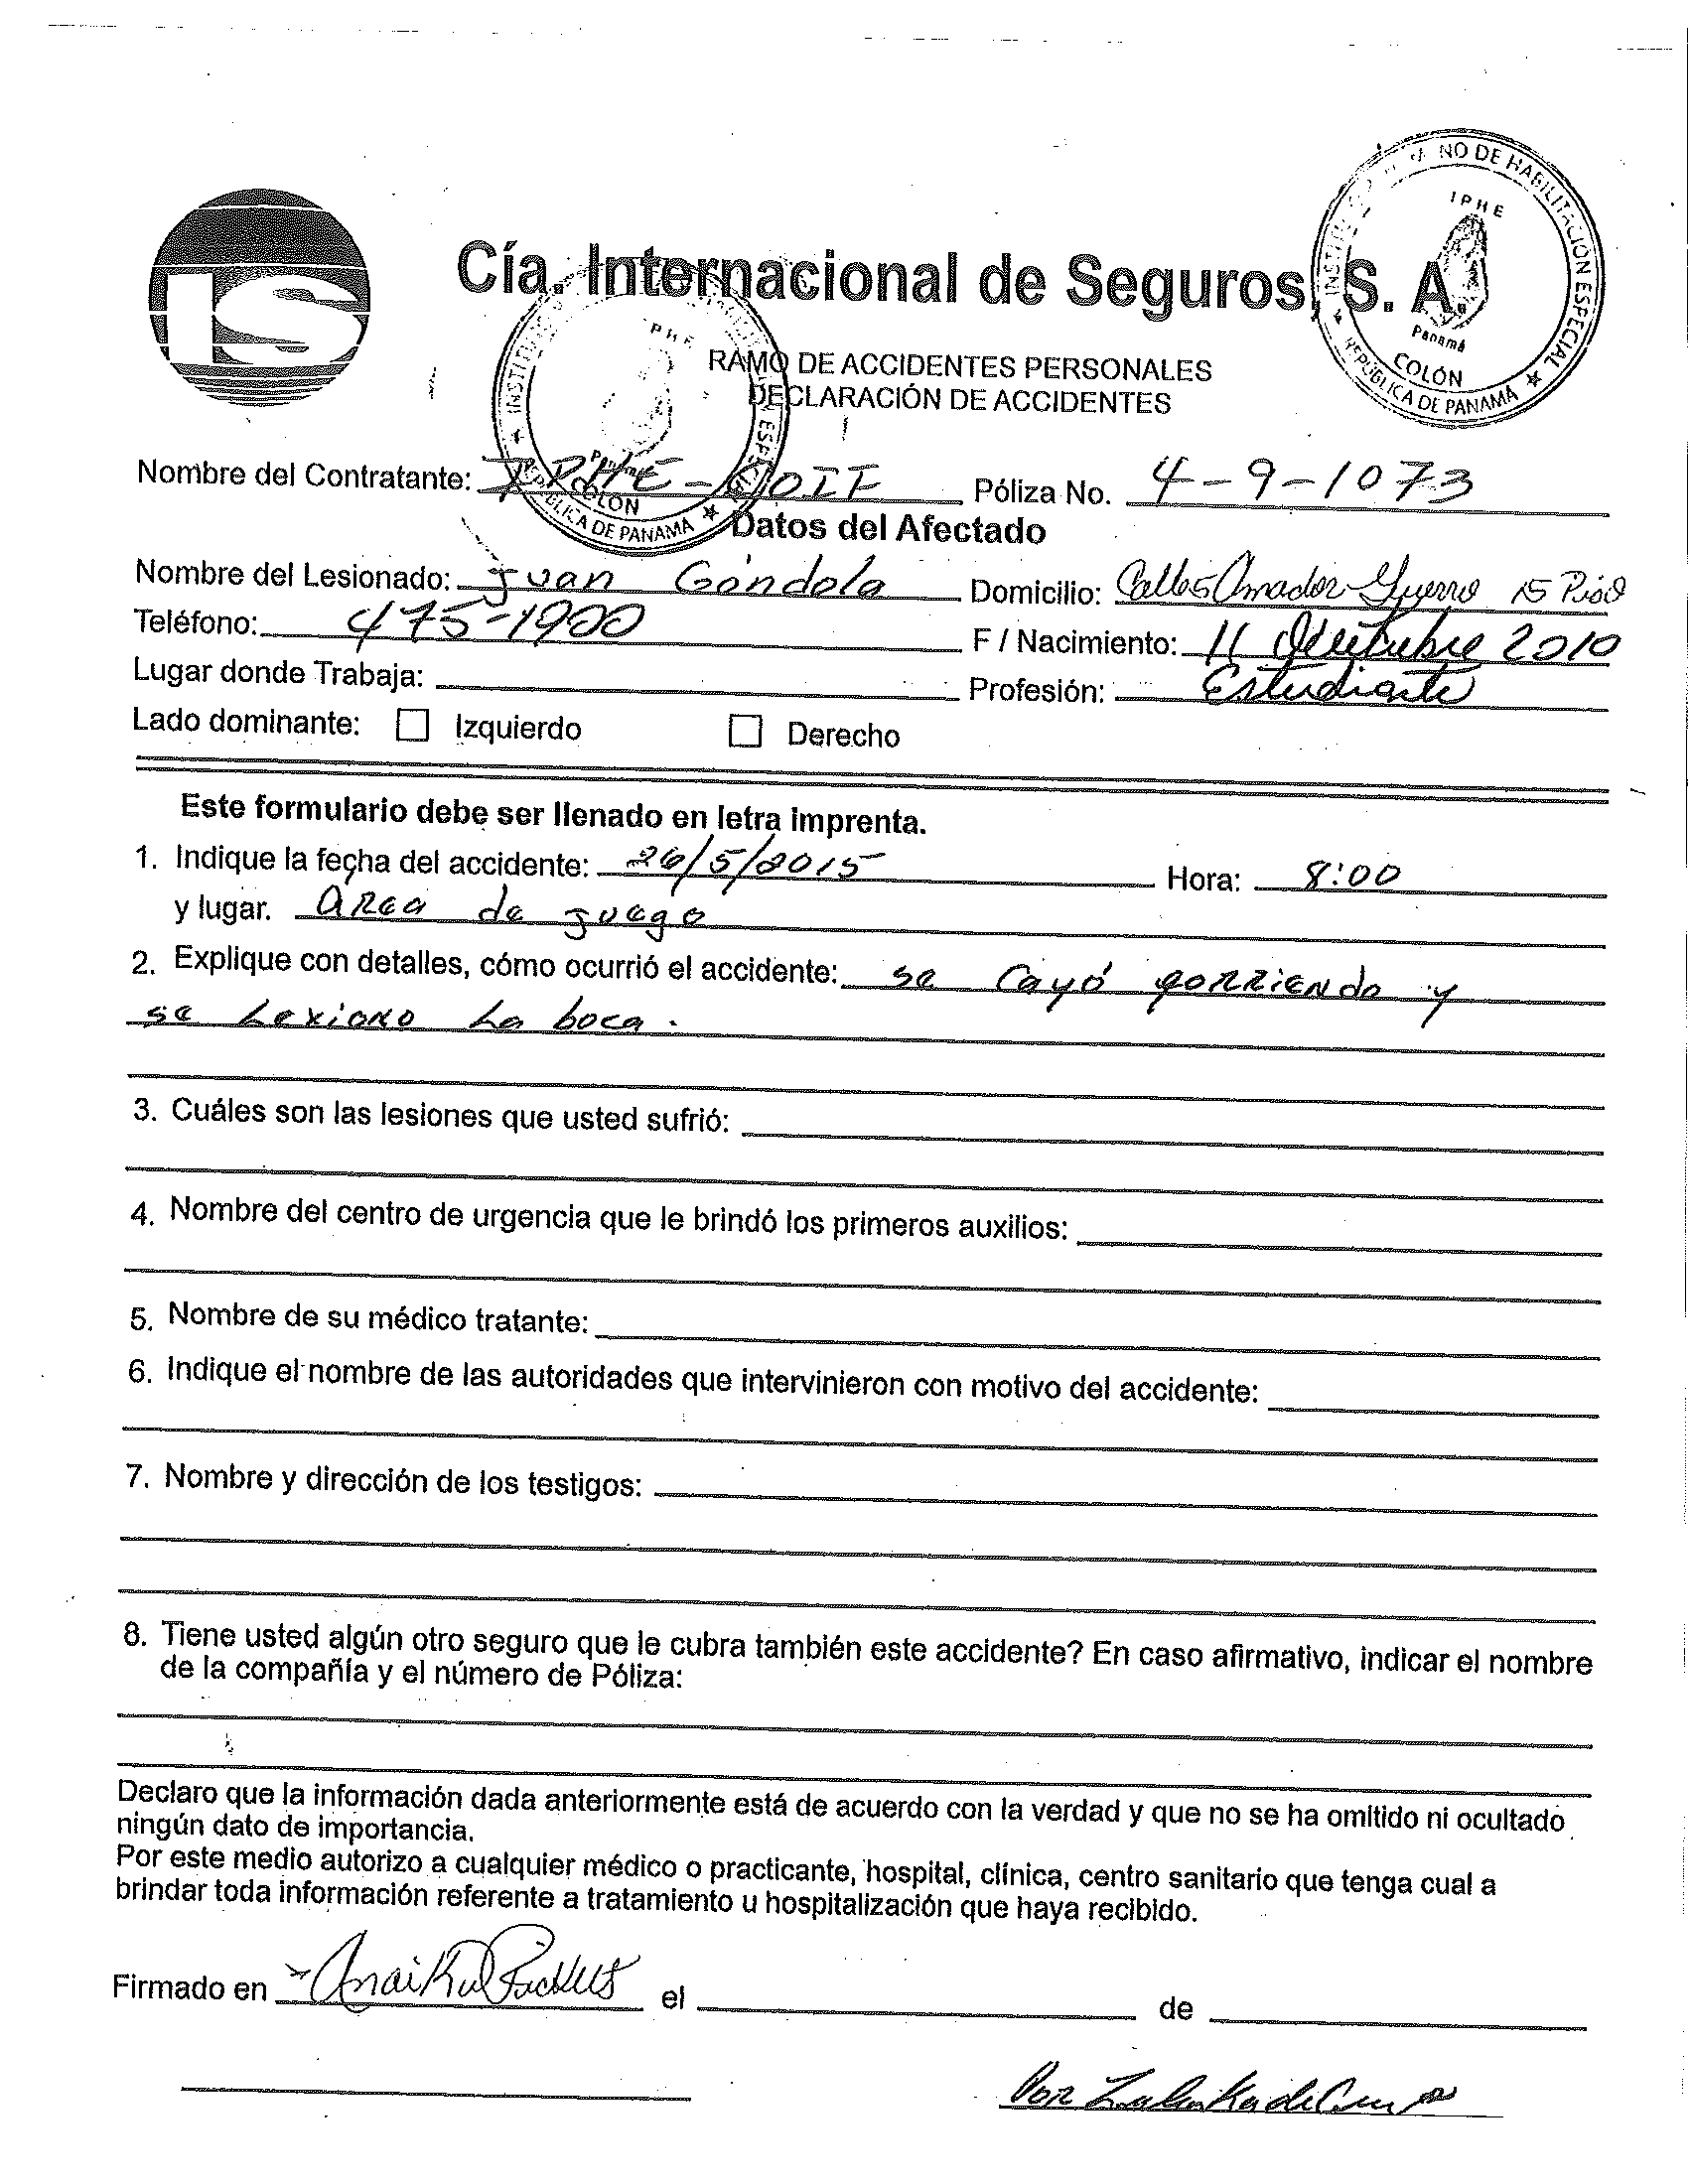 IS
Cía. Internacional de Seguros, S. A.
NO DE HABILITACIÓN ESPECIAL
IPHE
Panamá
COLÓN
REPÚBLICA DE PANAMÁ
RAMO DE ACCIDENTES PERSONALES
DECLARACIÓN DE ACCIDENTES
Nombre del Contratante: IPHE - Póliza No. 4-9-1073
COLÓN
DE PANAMÁ
Datos del Afectado
Nombre del Lesionado: Juan Góndola Domicilio: Calle 5 Amador Guerro 15 Piso
Teléfono: 475-1900 F / Nacimiento: 11 2010
Lugar donde Trabaja: Profesión: Estudiante
Lado dominante: Izquierdo Derecho
Este formulario debe ser llenado en letra imprenta.
1. Indique la fecha del accidente: 26/5/2015 Hora: 8:00
y lugar. Area de juego
2. Explique con detalles, cómo ocurrió el accidente: se cayó corriendo y
se Lexiono La boca.
3. Cuáles son las lesiones que usted sufrió:
4. Nombre del centro de urgencia que le brindó los primeros auxilios:
5. Nombre de su médico tratante:
6. Indique el nombre de las autoridades que intervinieron con motivo del accidente:
7. Nombre y dirección de los testigos:
8. Tiene usted algún otro seguro que le cubra también este accidente? En caso afirmativo, indicar el nombre
de la compañía y el número de Póliza:
Declaro que la información dada anteriormente está de acuerdo con la verdad y que no se ha omitido ni ocultado
ningún dato de importancia.
Por este medio autorizo a cualquier médico o practicante, hospital, clínica, centro sanitario que tenga cual a
brindar toda información referente a tratamiento u hospitalización que haya recibido.
Firmado en el de
Por